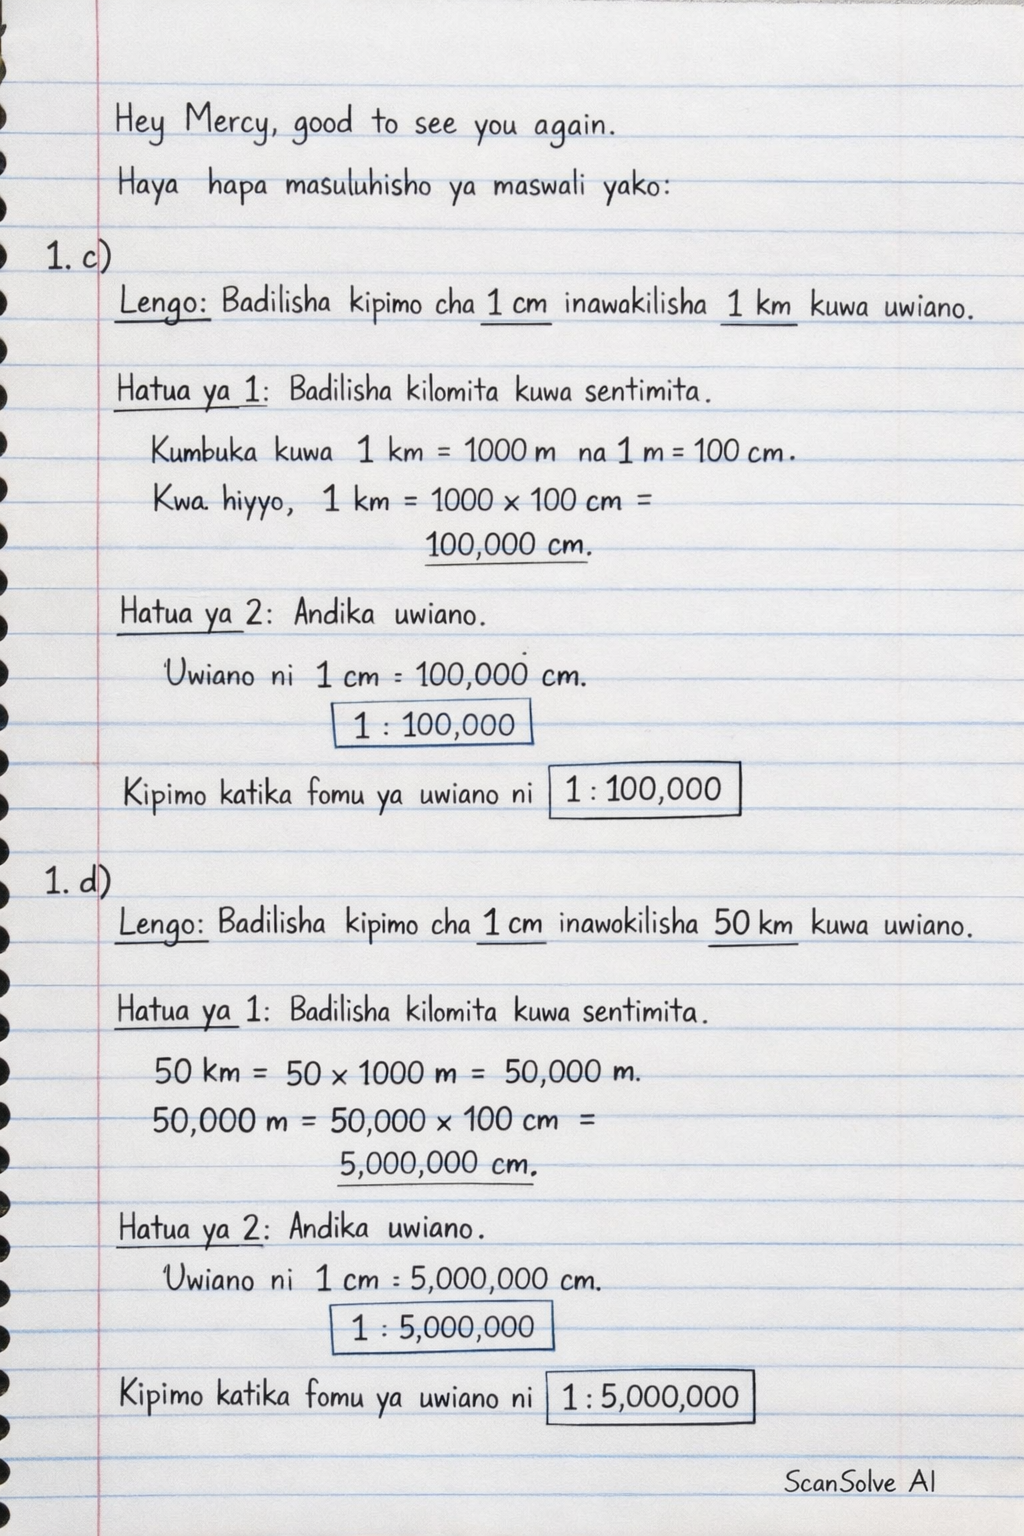 Hey Mercy, good to see you again.
Haya hapa masuluhisho ya maswali yako:
1. c)
Lengo: Badilisha kipimo cha 1 cm inawakilisha 1 km kuwa uwiano.
Hatua ya 1: Badilisha kilomita kuwa sentimita.
Kumbuka kuwa 1 km = 1000 m na 1 m = 100 cm.
Kwa hiyyo, 1 km = 1000 × 100 cm =
100,000 cm.
Hatua ya 2: Andika uwiano.
Uwiano ni 1 cm : 100,000 cm.
1 : 100,000
Kipimo katika fomu ya uwiano ni 1 : 100,000
1. d)
Lengo: Badilisha kipimo cha 1 cm inawokilisha 50 km kuwa uwiano.
Hatua ya 1: Badilisha kilomita kuwa sentimita.
50 km = 50 × 1000 m = 50,000 m.
50,000 m = 50,000 × 100 cm =
5,000,000 cm.
Hatua ya 2: Andika uwiano.
Uwiano ni 1 cm : 5,000,000 cm.
1 : 5,000,000
Kipimo katika fomu ya uwiano ni 1 : 5,000,000
ScanSolve AI